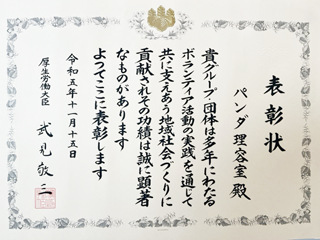 表彰状
パンダ理容室 殿
貴グループ・団体は多年にわたる
ボランティア活動の実践を通じて
共に支えあう地域社会づくりに
貢献されその功績は誠に顕著
なものがあります
よってここに表彰します
令和五年十一月十五日
厚生労働大臣 武見敬三